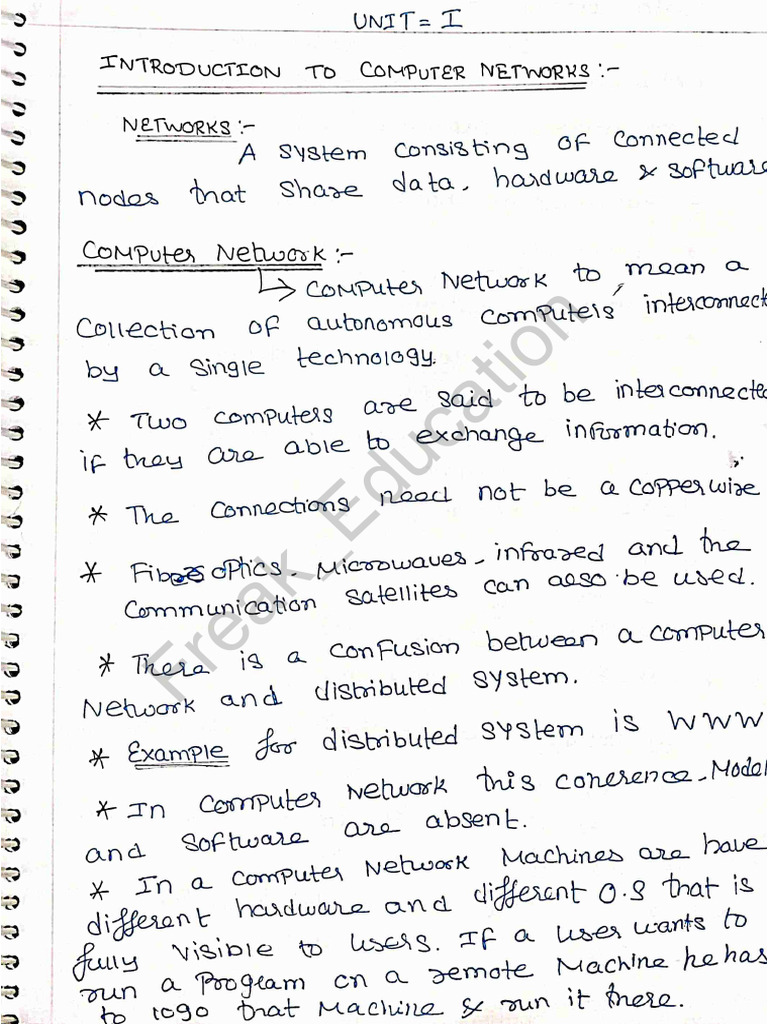 UNIT = I
INTRODUCTION TO COMPUTER NETWORKS :-
NETWORKS :-
A system consisting of connected
nodes that share data, hardware & software
Computer Network :-
Computer Network to mean a
Collection of autonomous computers interconnect
by a single technology.
* Two computers are said to be interconnecte
if they are able to exchange information.
* The connections need not be a copper wire
* Fibres optics, Microwaves, infrared and the
Communication satellites can also be used.
* There is a confusion between a computer
Network and distributed system.
* Example for distributed system is WWW
* In Computer Network this coherence, Model
and software are absent.
* In a computer Network Machines are have
different hardware and different O.S that is
fully visible to users. If a user wants to
run a program on a remote Machine he has
to logo that Machine & run it there.
Freak_Education